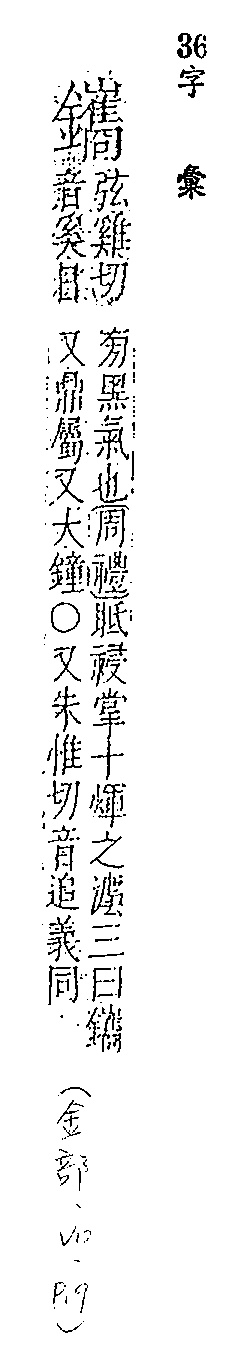 36 字彙
鑴
弦雞切
音奚日
旁黑氣也周禮眡祲掌十煇之灋三曰鑴
又鼎屬又大鐘○又朱惟切音追義同
(金部、